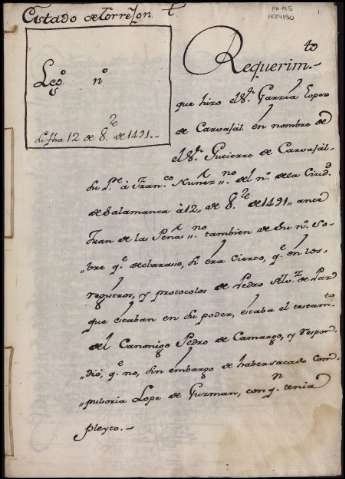 Estado de Torrejon
Leg.º n.º
su fha 12 de 8.re de 1491.
Requerim.to
que hizo el S.r Garzia Lopez
de Carvajal en nombre de
el S.r Gutierre de Carvajal
su P.e a Fran.co Nuñez no del n.º de la Ciud.
de Salamanca à 12,, de 8.re de 1491,, ante
Juan de la Peña no tambien de su n.º So-
,,bre q.e declarase, si era Cierto, q.e en los
registros, y protocolos de Pedro Alv.z de Paz
que estaban en su poder, estaba el testam.to
del Canonigo Pedro de Camargo, y respon-
dió, q.e no, sin embargo de haber sacado com-
pulsoria Lope de Guzman, con q.n tenia
pleyto.-